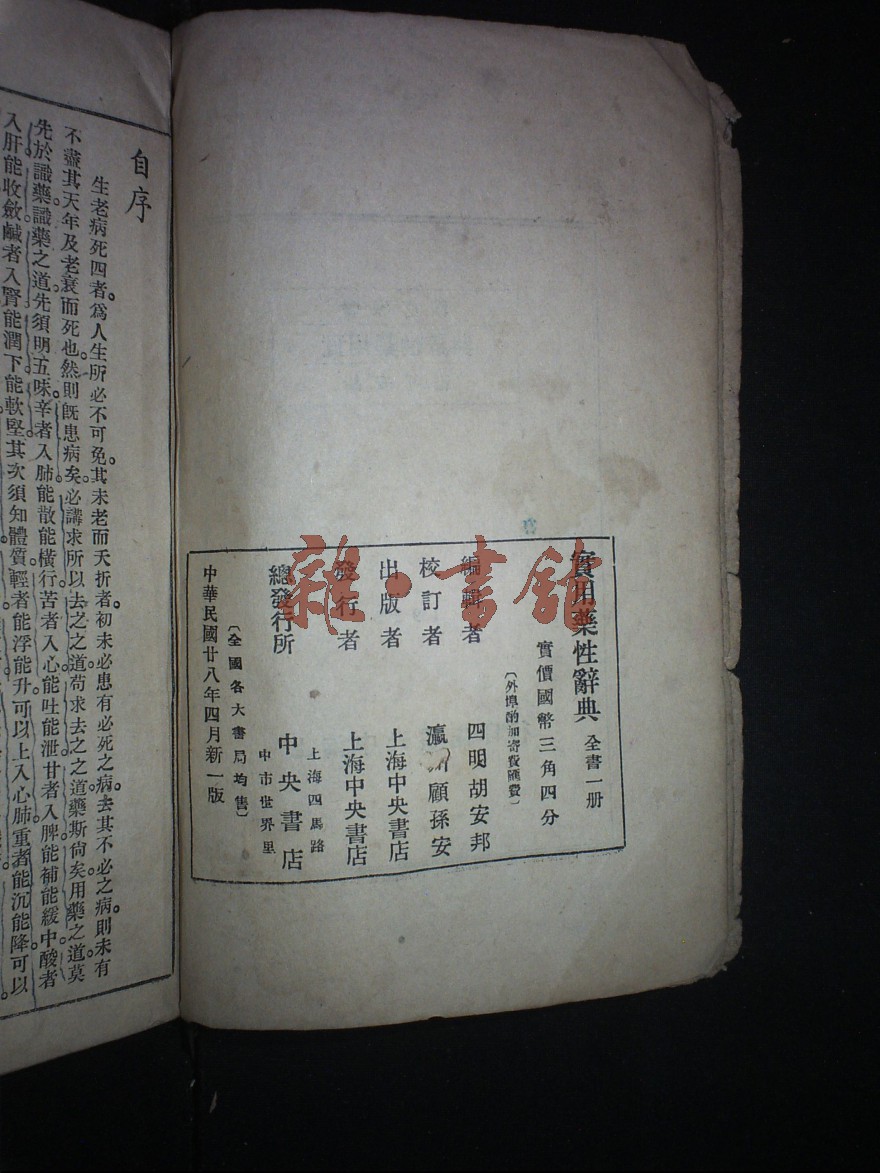 實用藥性辭典 全書一册
實價國幣三角四分
〔外埠酌加寄費匯費〕
編輯者 四明胡安邦
校訂者 瀛洲顧孫安
出版者 上海中央書店
發行者 上海中央書店
上海四馬路
總發行所 中央書店
中市世界里
〔全國各大書局均售〕
中華民國廿八年四月新一版
雜·書館
自序
生老病死四者。爲人生所必不可免。其未老而夭折者。初未必患有必死之病。去其不必之病。則未有
不盡其天年及老衰而死也。然則既患病矣。必講求所以去之之道。苟求去之之道。藥斯尙矣。用藥之道。莫
先於識藥。識藥之道。先須明五味。辛者入肺能散能橫行。苦者入心能吐能泄。甘者入脾能補能緩中。酸者
入肝能收斂。鹹者入腎能潤下能軟堅。其次須知體質。輕者能浮能升。可以上入心肺。重者能沉能降。可以